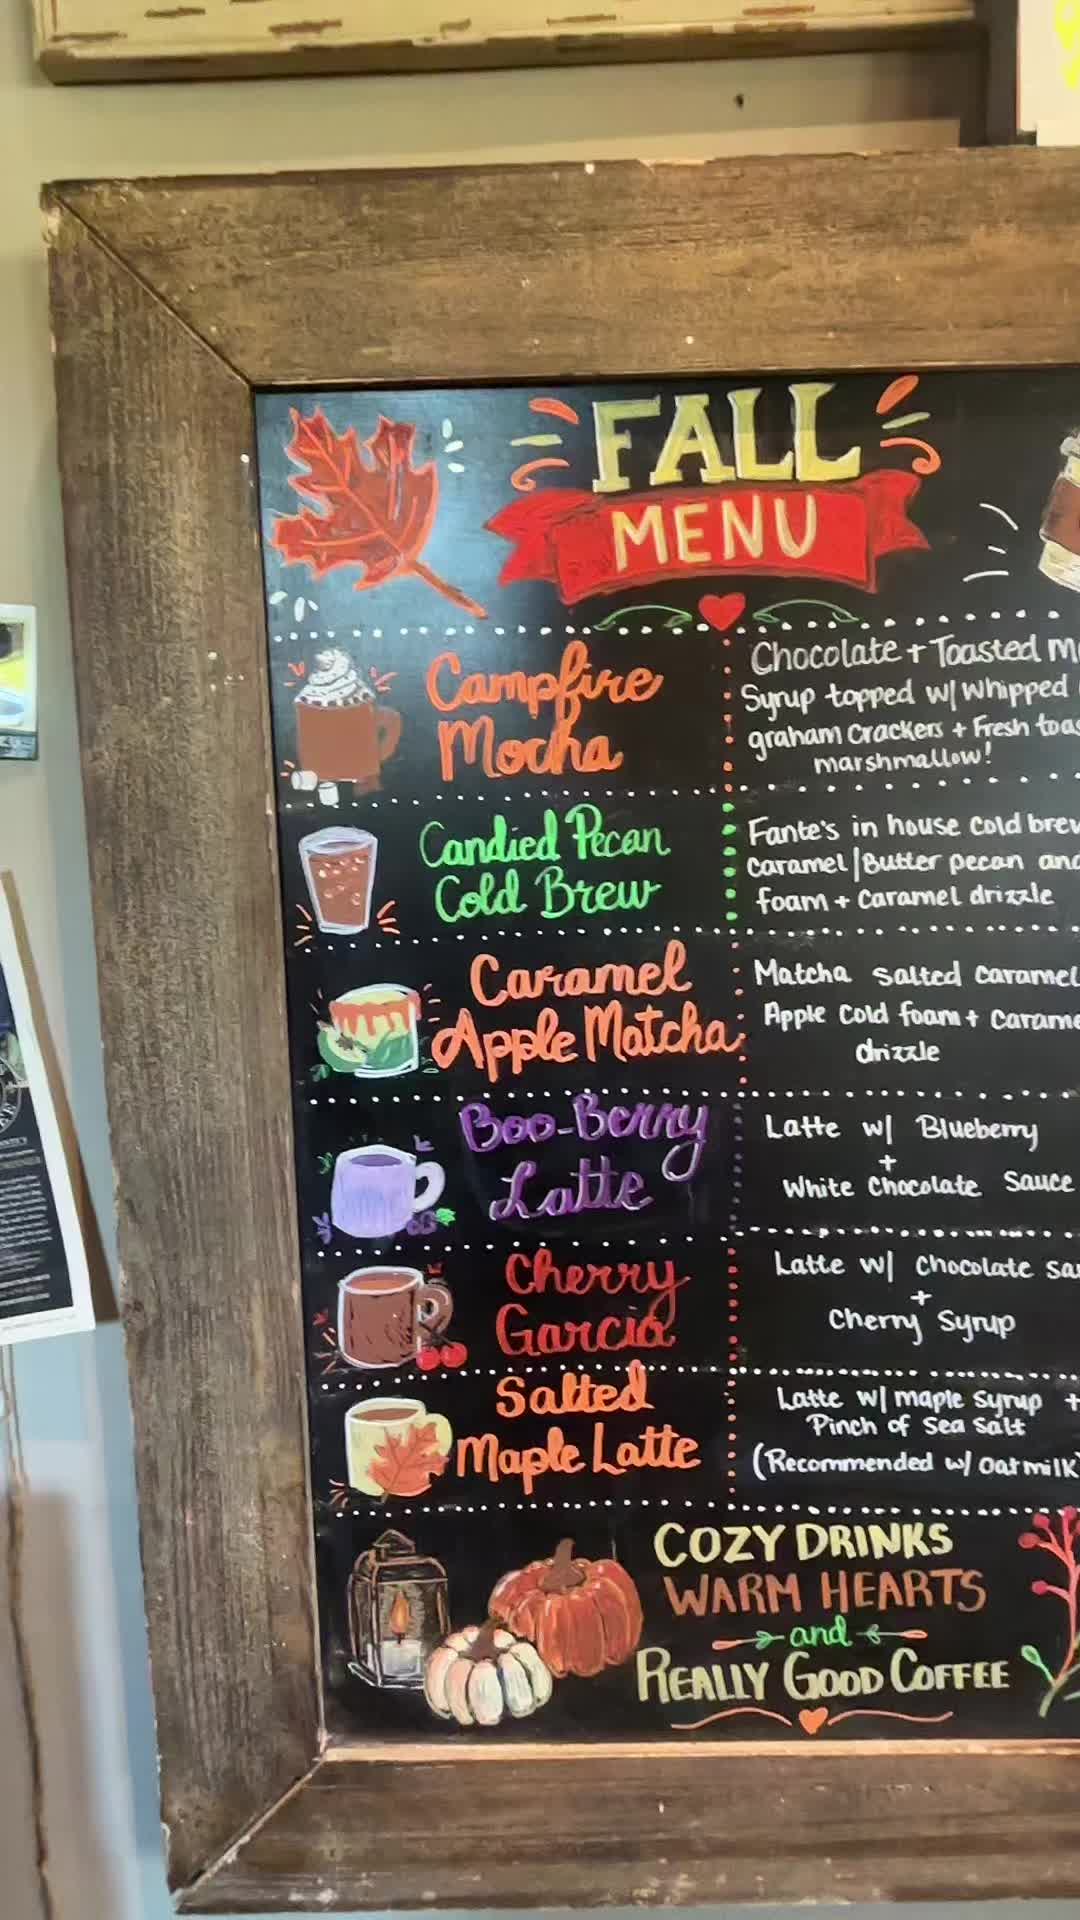 FALL
MENU
Campfire
Mocha
Chocolate + Toasted
Syrup topped w/ whipped
graham crackers + Fresh
marshmallow!
Candied Pecan
Cold Brew
Fante's in house cold brew
caramel/Butter pecan and
foam + caramel drizzle
Caramel
Apple Matcha
Matcha salted caramel
Apple cold foam + 
drizzle
Boo-Berry
Latte
Latte w/ Blueberry
+
White chocolate sauce
Cherry
Garcia
Latte w/ chocolate
+
Cherry Syrup
Salted
Maple Latte
Latte w/ maple syrup +
Pinch of sea salt
(Recommended w/ oatmilk)
COZY DRINKS
WARM HEARTS
and
REALLY GOOD COFFEE